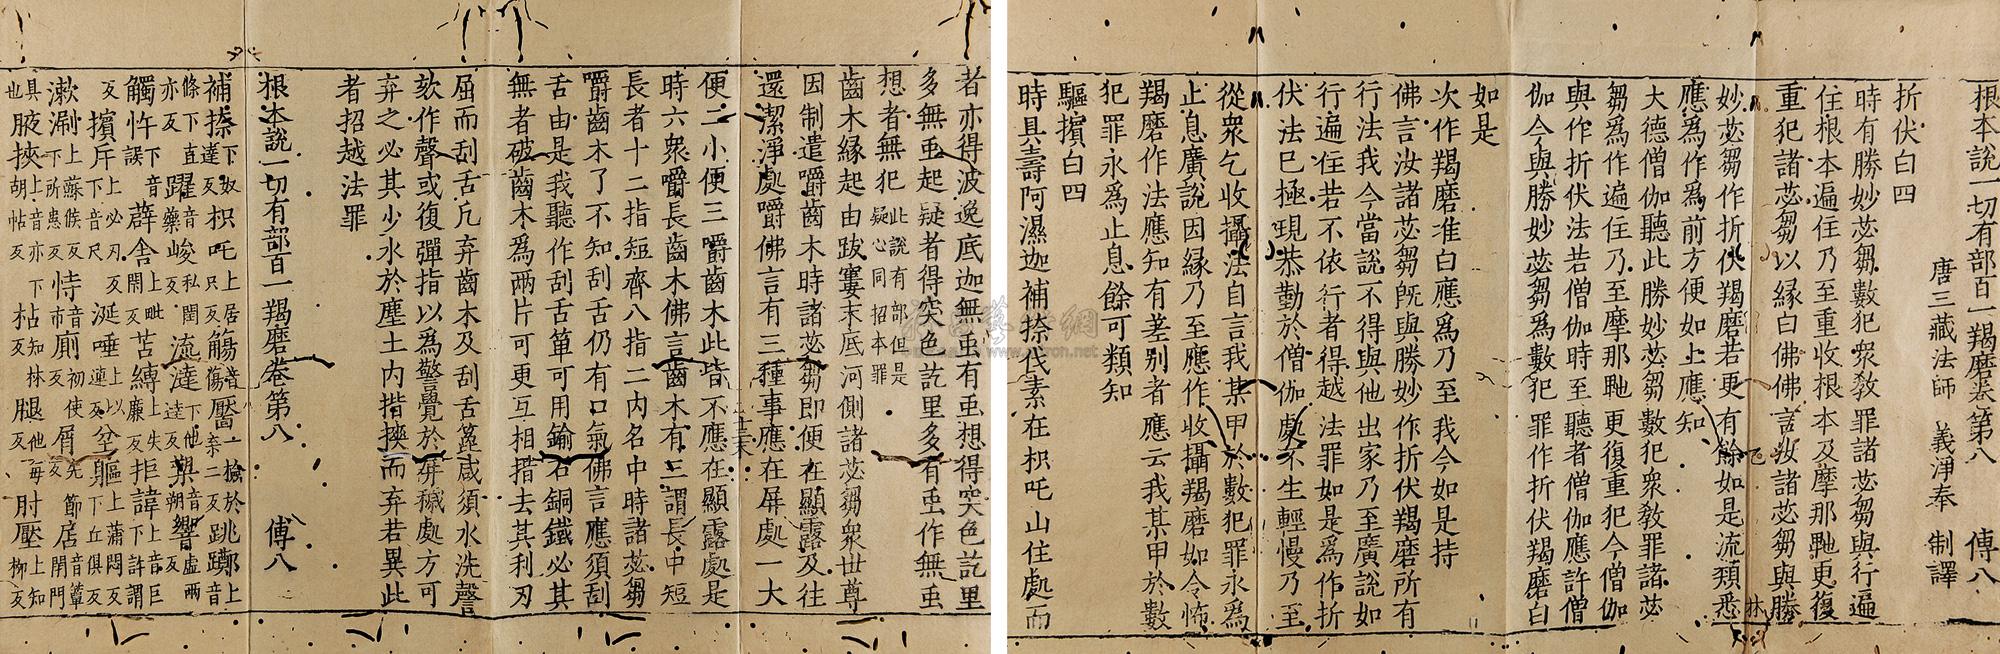 根本說一切有部百一羯磨卷第八 傅八
唐三藏法師 義淨奉 制譯
折伏白四
時有勝妙苾芻數犯衆教罪諸苾芻與行遍
住根本遍住乃至重收根本及摩那𤿺更復
重犯諸苾芻以緣白佛佛言汝諸苾芻與勝
妙苾芻作折伏羯磨若更有餘如是流類悉
應爲作爲前方便如上應知
大德僧伽聽此勝妙苾芻數犯衆教罪諸苾
芻爲作遍住乃至摩那𤿺更復重犯今僧伽
與作折伏法若僧伽時至聽者僧伽應許僧
伽今與勝妙苾芻爲數犯罪作折伏羯磨白
如是
次作羯磨准白應爲乃至我今如是持
佛言汝諸苾芻旣與勝妙作折伏羯磨所有
行法我今當說不得與他出家乃至廣說如
行遍住若不依行者得越法罪如是爲作折
伏法已極現恭勤於僧伽處不生輕慢乃至
從衆乞收攝法自言我某甲於數犯罪永爲
止息廣說因緣乃至應作收攝羯磨如令怖
羯磨作法應知有差别者應云我某甲於數
犯罪永爲止息餘可類知
驅擯白四
時具壽阿濕迦補捺伐素在枳吒山住處而
者亦得波逸底迦無虫有虫想得突色訖里
多無虫起疑者得突色訖里多有虫作無虫
想者無犯此說有部但是疑心同招本罪
齒木緣起由跋窶末底河側諸苾芻衆世尊
因制遣嚼齒木時諸苾芻即便在顯露及往
還潔淨處嚼佛言有三種事應在屏處一大
便二小便三嚼齒木此皆不應在顯露處是
時六衆嚼長齒木佛言齒木有三謂長中短
長者十二指短齊八指二內名中時諸苾芻
嚼齒木了不知刮舌仍有口氣佛言應須刮
舌由是我聽作刮舌箄可用鍮石銅鐵必其
無者破齒木爲兩片可更互相揩去其利刃
屈而刮舌凡弃齒木及刮舌箄咸須水洗聲
欬作聲或復彈指以爲警覺於屏穢處方可
弃之必其少水於塵土內揩挾而弃若異此
者招越法罪
根本說一切有部百一羯磨卷第八 傅八